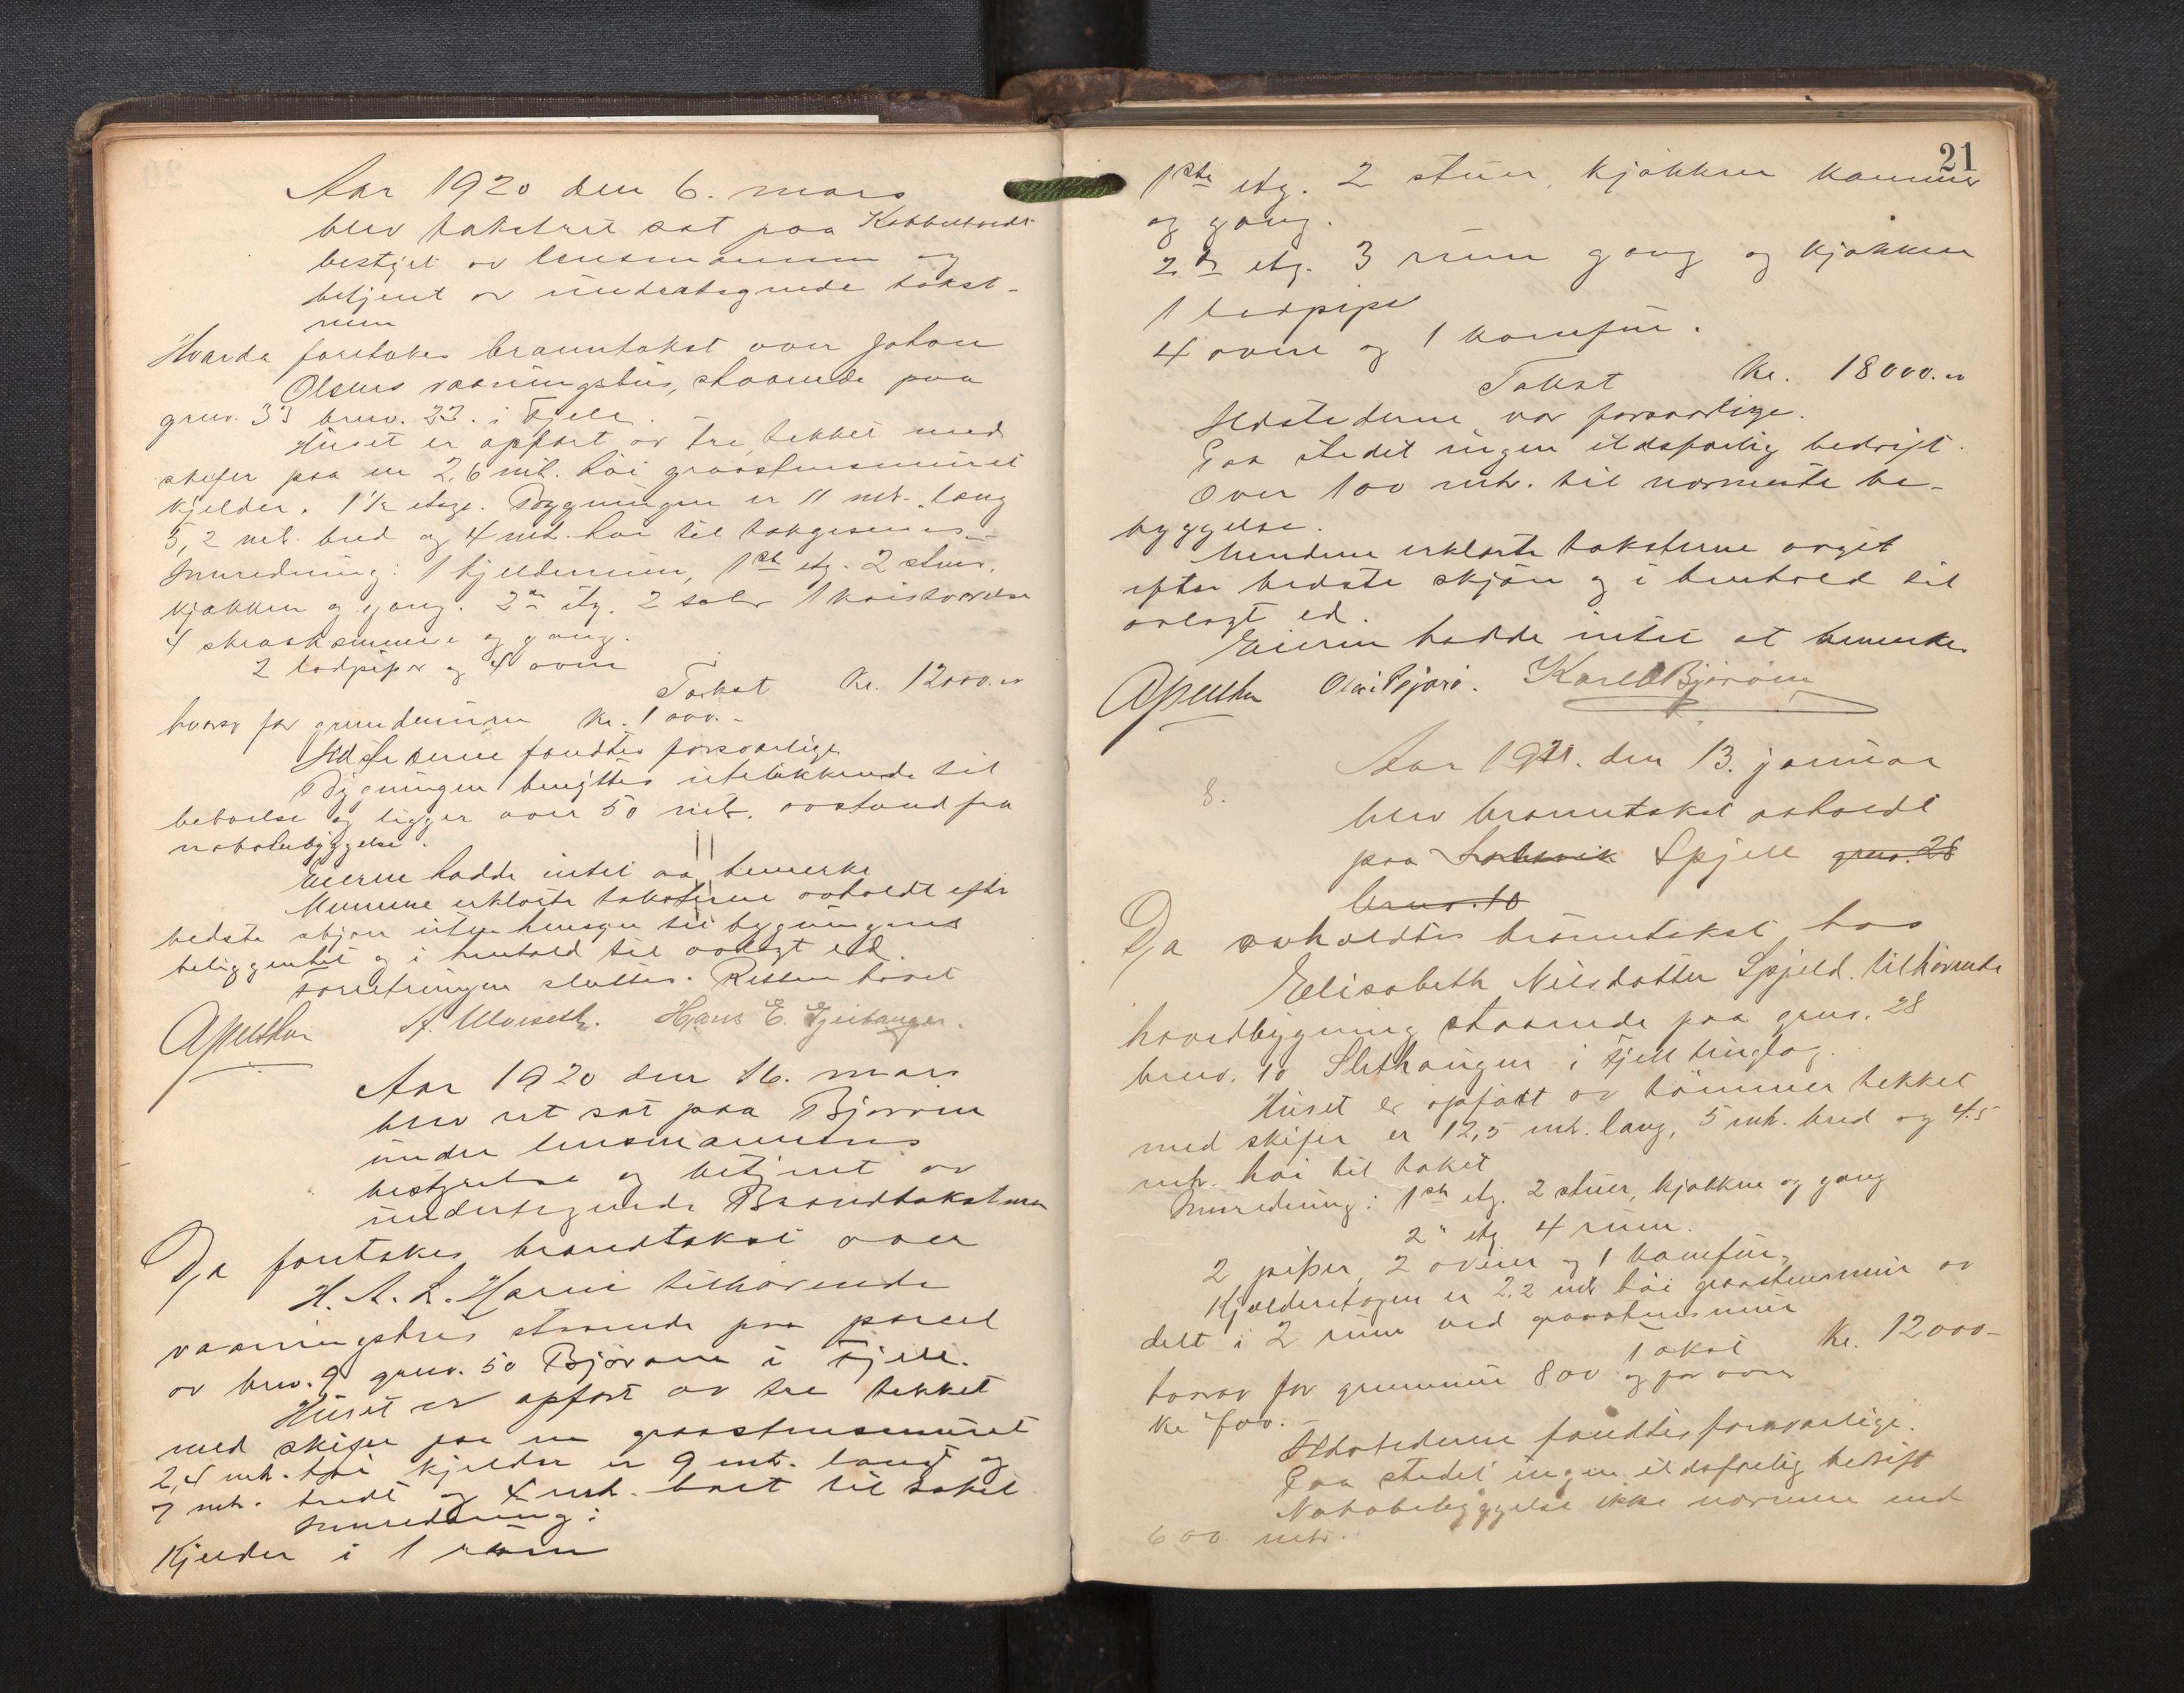 Aar 1920 den 6. mars
blev takstret sat paa
bestyret av lensmannen og
betjent av undertegnede takst-
men
Hvorda foretokes branntakst over Johan
Olsens vaaningshus, staaende paa
grnv. 33 brnv. 23. i Fjell.
Huset er opført av tre, tekket med
skifer paa en 2,6 mtr. høi graastensmuret
kjelder. 1 1/2 etage. Bygningen er 11 mtr. lang
5,2 mtr. bred og 4 mtr. høi til takgesims.
Innredning: 1 kjelderrum, 1ste etg. 2 stuer,
kjøkken og gang. 2den etg. 2 saler 1 kvistværelse
4 og gang.
2 lodpiper og 4 ovne
Takst kr. 12000.00
hvorav for grundmuren kr. 1000.-
Ildstederne fandtes forsvarlige
Bygningen benyttes utelukkende til
beboelse og ligger over 50 mtr. avstand fra
nabobebyggelse.
Eieren hadde intet aa bemerke
Mennene erklærte taksterne avholdt efter
bedste skjøn uten hensyn til bygningens
beliggenhet og i henhold til avlagt ed.
Forretningen sluttes. Retten hævet
A. Ulveseth. Hans E. Gjertanger.
Aar 1920 den 16. mars
blev ret sat paa Bjorøen
under lensmannens
bestyrelse og betjent av
undertegnede Brandtakstmen
Da foretokes brandtakst over
H. A. L. tilhørende
vaaningshus staaende paa parcel
av brnv. 9 grnv. 50 Bjorøen i Fjell.
Huset er opført av tre tekket
med skifer paa en graastensmuret
2,4 mtr. høi kjelder er 9 mtr. langt og
7 mtr. bredt og 4 mtr. høit til taket
Innredning:
Kjelder i 1 rum
21
1ste etg. 2 stuer, kjøkken kammer
og gang.
2den etg. 3 rum gang og kjøkken
1 lodpipe
4 ovne og 1 komfur.
Takst kr. 18000.00
Ildstederne var forsvarlige.
Paa stedet ingen ildsfarlig bedrift.
Over 100 mtr. til nærmeste be-
byggelse.
Mendene erklærte taksterne avgit
efter bedste skjøn og i henhold til
avlagt ed.
Eieren hadde intet at bemerke
Karl Bjorøen
Aar 1921. den 13. januar
8.
blev branntakst avholdt
paa Spjell grnv. 28
brnv. 10
Da avholdtes branntakst hos
Elisabeth Nilsdatter Spjeld. tilhørende
hovedbygning staaende paa grnv. 28
brnv. 10 Slethaugen i Fjell tinglag.
Huset er opført av tømmer tekket
med skifer er 12,5 mtr. lang, 5 mtr. bred og 4.5
mtr. høi til taket
Innredning: 1ste etg. 2 stuer, kjøkken og gang
2" etg 4 rum.
2 piper, 2 ovner og 1 komfur.
Kjelderetagen er 2.2 mtr høi graastensmur av
delt i 2 rum ved graastensmur
Takst kr. 12000-
hvorav for grunmur 800 og for ovne
kr
Ildstederne fandtes forsvarlige.
Paa stedet ingen ildsfarlig bedrift
Nabobebyggelse ikke nærmere end
600 mtr.